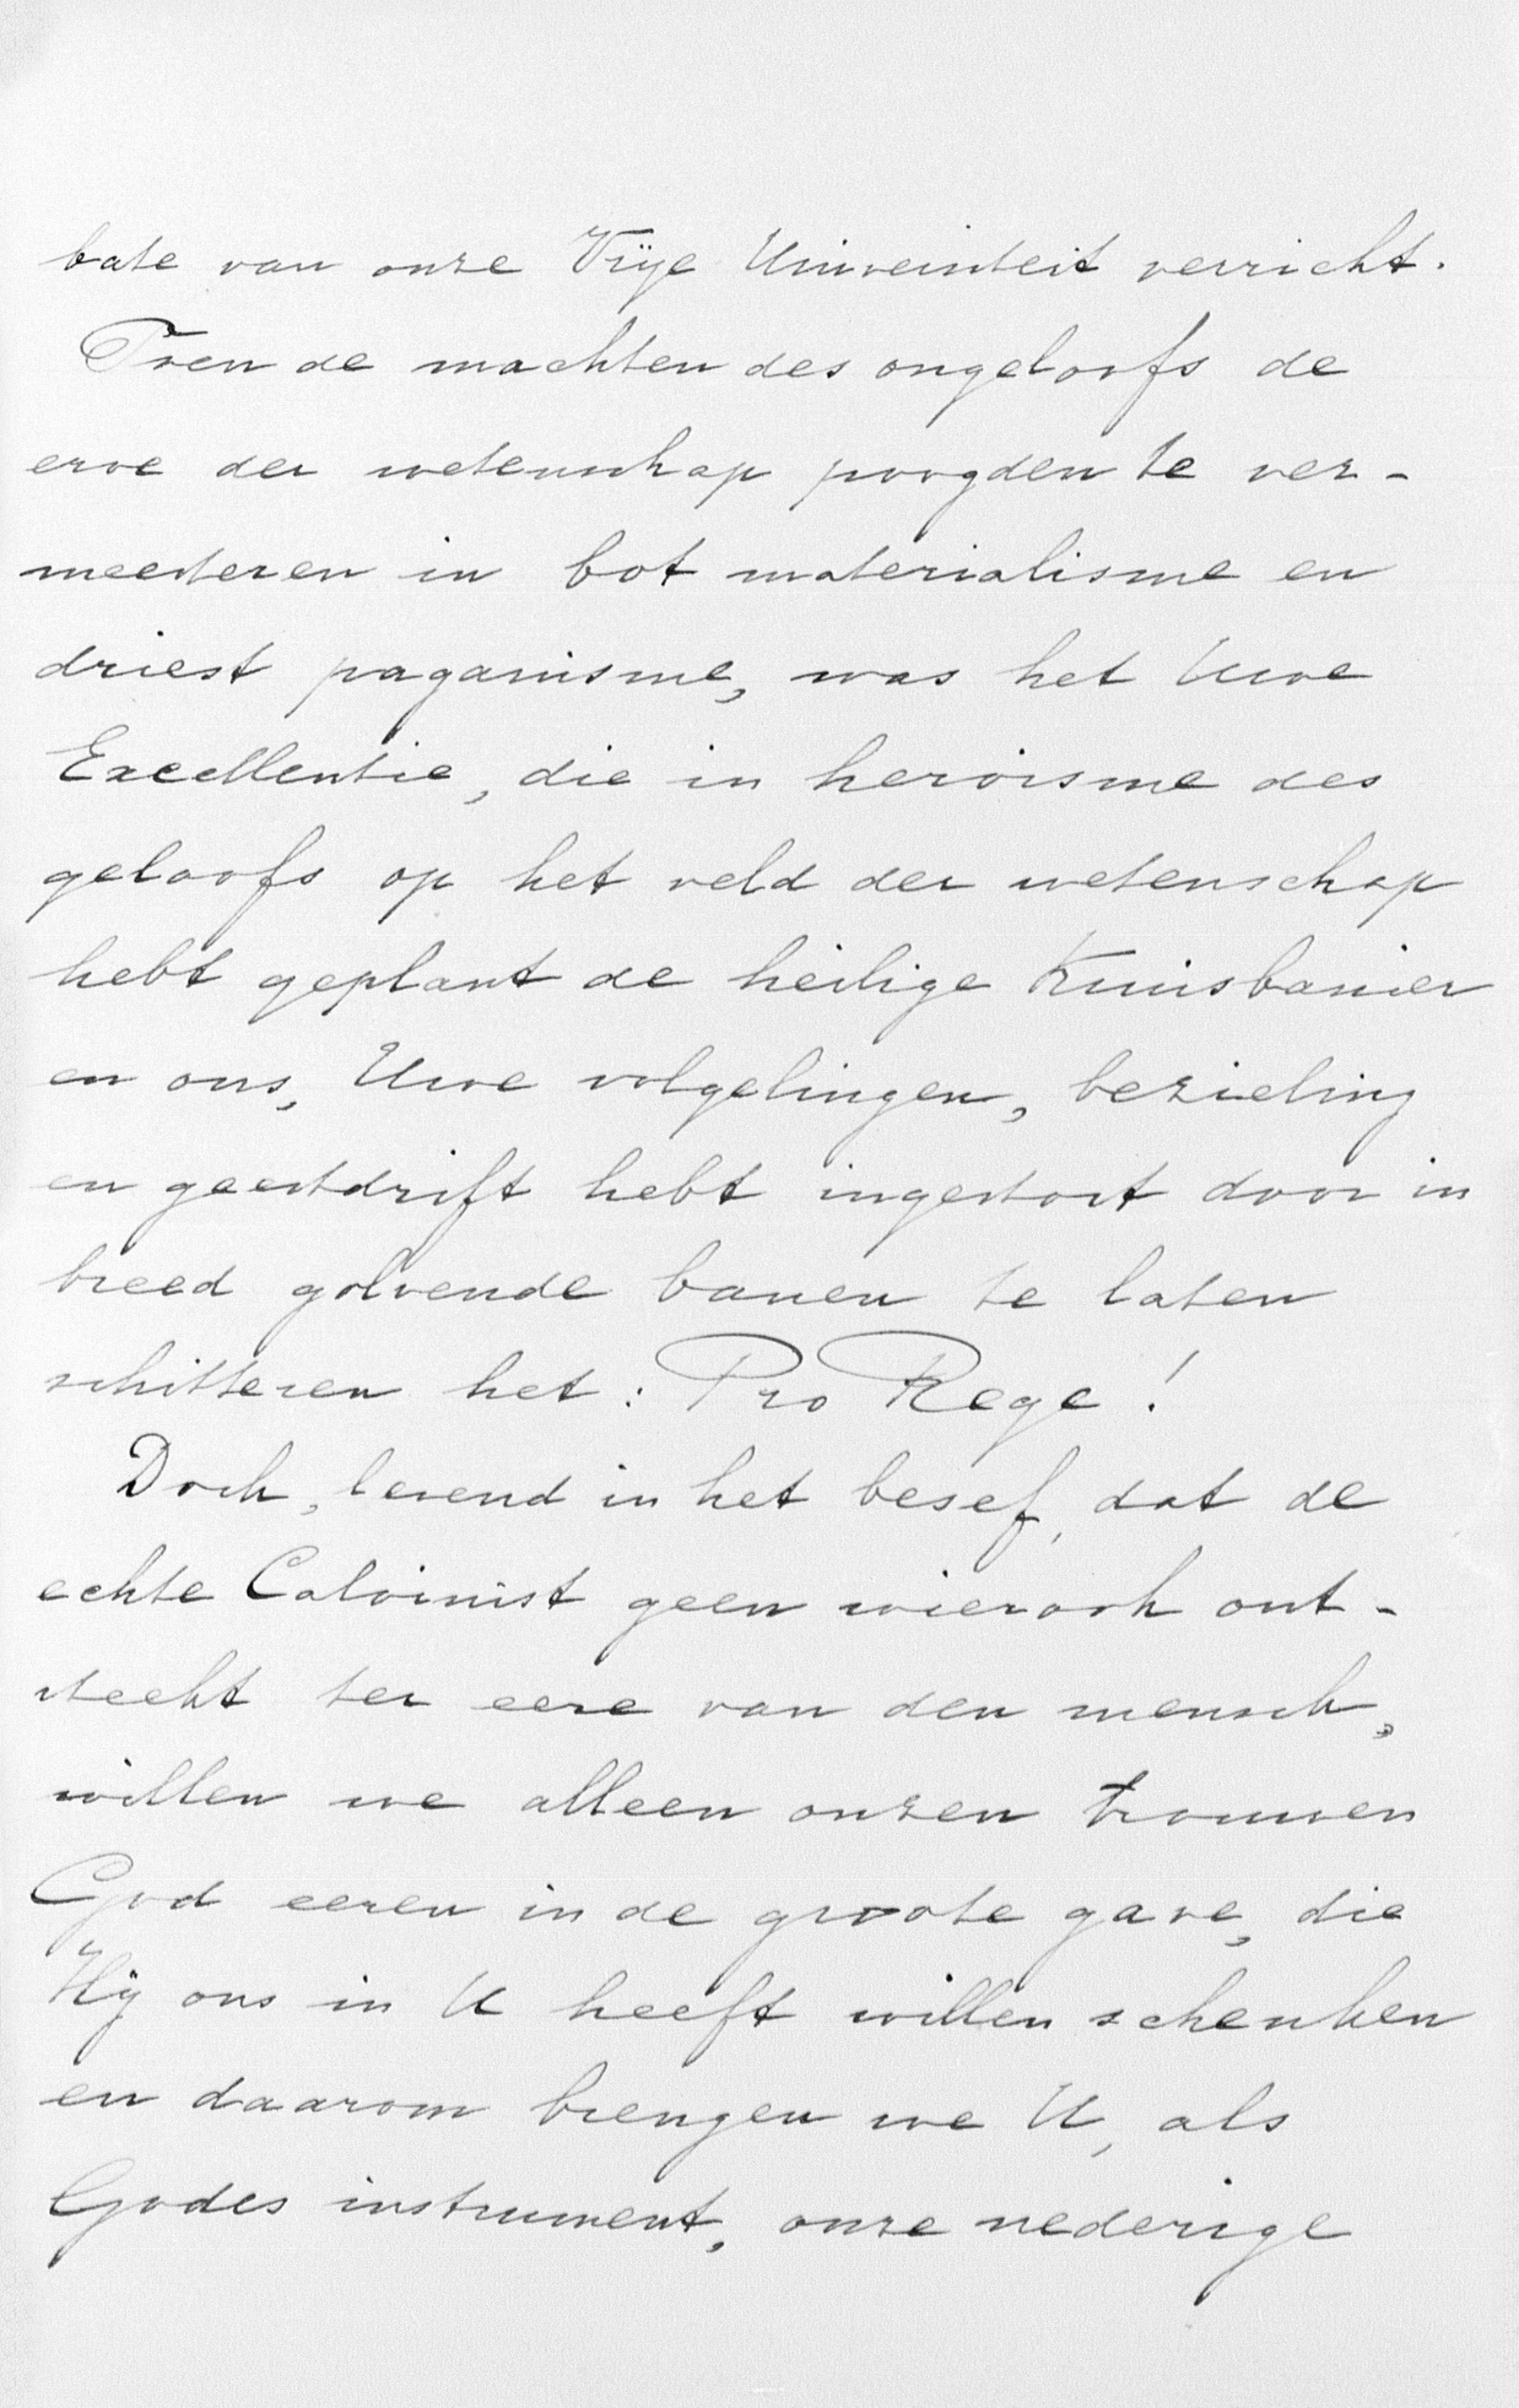 bate van onze Vrije Universiteit verricht.
Toen de machten des ongeloofs de
erve der wetenschap poogden te ver-
meesteren in bot materialisme en
driest paganisme, was het Uwe
Excellentie, die in heroisme des
geloofs op het veld der wetenschap
hebt geplant de heilige Kruisbanier
en ons, Uwe volgelingen, bezieling
en geestdrift hebt ingestort door in
breed golvende banen te laten
schitteren het: Pro Rege!
Doch, levend in het besef, dat de
echte Calvinist geen wierook ont-
steekt ter eere van den mensch,
willen we alleen onzen trouwen
God eeren in de groote gave, die
Hij ons in U heeft willen schenken
en daarom brengen we U, als
Godes instrument, onze nederige